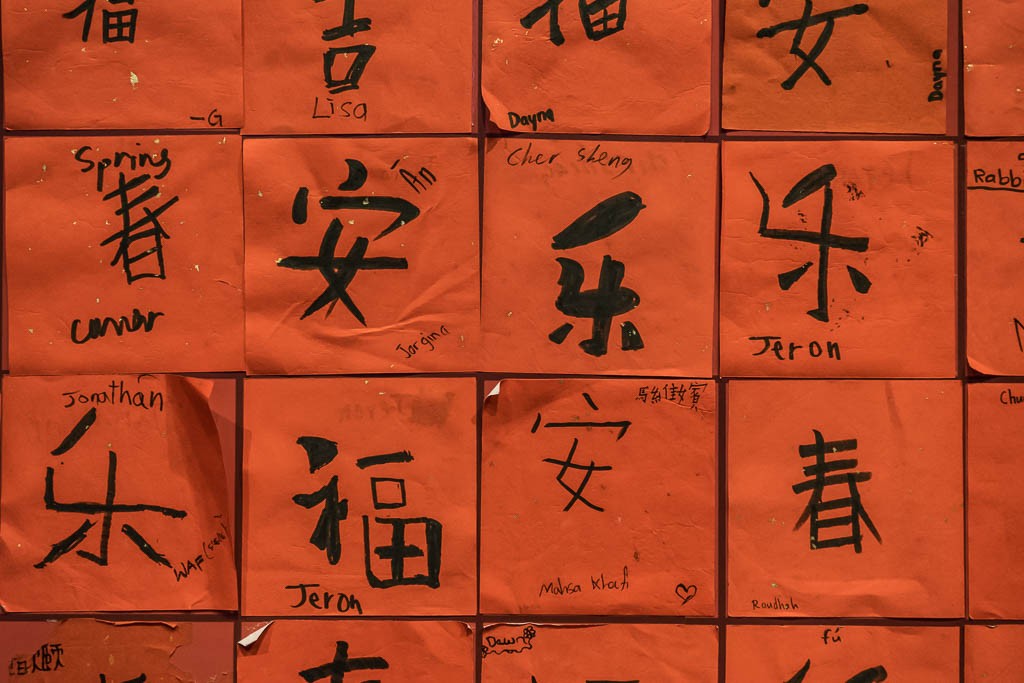 福
-G
吉
Lisa
福
Dayna
安
Dayna
Spring
春
安
Ān
Jorgina
Cher Sheng
乐
乐
Jeron
Rabbi
Jonathan
乐
WAF
福
Jeron
安
Mahsa Khafi
春
Raudhah
Dawn
fú